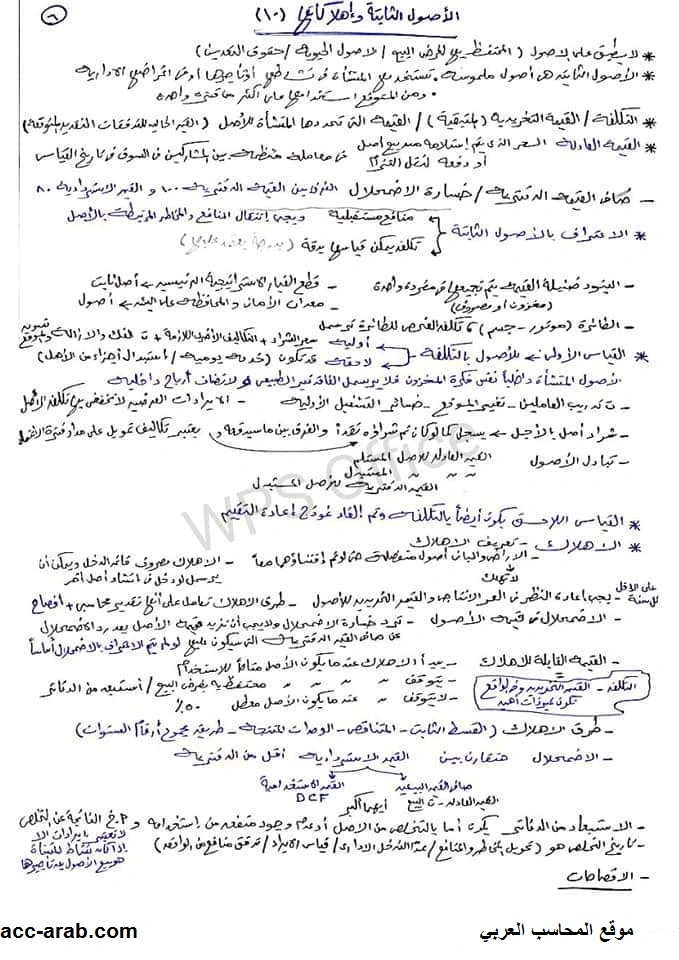 ٦
الأصول الثابتة وإهلاكاتها (١٠)
* لا ينطبق على الأصول (المحتفظ بها لغرض البيع / الأصول الحيوية / حقوق التعدين)
* الأصول الثابتة هى أصول ملموسة تستخدمها المنشأة فى نشاطها أو تأجيرها أو فى أغراضها الإدارية
ومن المتوقع استخدامها على أكثر من فترة واحدة.
* التكلفة / القيمة التخريدية (المتبقية) / القيمة التى تحددها المنشأة للأصل (القيمة الحالية للتدفقات النقدية المتوقعة)
* القيمة العادلة السعر الذى يتم استلامه عند بيع أصل
أو دفعه لنقل التزام فى معاملة منتظمة بين المشاركين فى السوق فى تاريخ القياس
- صافى القيمة الدفترية / خسارة الاضمحلال الفرق بين القيمة الدفترية ١٠٠ والقيمة الاستردادية ٨٠
* الاعتراف بالأصول الثابتة
منافع مستقبلية ويجب انتقال المنافع والمخاطر المرتبطة بالأصل
تكلفة يمكن قياسها بدقة (بدرجة يعتمد عليها)
- البنود ضئيلة القيمة يتم تجميعها فى مفردة واحدة
(مخزون أو مصروف)
- قطع الغيار الاستراتيجية الرئيسية ← أصل ثابت
- معدات الأمان والمحافظة على البيئة ← أصول
- الطائرة (موتور - جسم) تكلفة الفحص للطائرة
* القياس الأولى ← للأصول بالتكلفة
أولية سعر الشراء + التكاليف الأخرى اللازمة + ت الفك والإزالة وتسوية الموقع
لاحقة قد تكون (خدمة يومية / استبدال أجزاء من الأصل)
الأصول المنشأة داخلياً نفس فكرة المخزون فلا يرسمل الفاقد غير الطبيعى ولا تضاف أرباح داخلية
- ت تدريب العاملين - تغيير الموقع - خسائر التشغيل الأولية - الإيرادات العرضية لا تخفض بها تكلفة الأصل
- شراء أصل بالأجل ← يسجل كما لو كان تم شراؤه نقداً والفرق بين ما سيدفعه و يعتبر تكاليف تمويل على مدار فترة الائتمان
- تبادل الأصول القيمة العادلة للأصل المستلم
" " " المستبدل
القيمة الدفترية للأصل المستبدل
* القياس اللاحق يكون أيضاً بالتكلفة وتم إلغاء نموذج إعادة التقييم
* الإهلاك - تعريف الإهلاك
- الأراضى والمبانى أصول منفصلة حتى لو تم اقتناؤها معاً
لا تهلك
- الإهلاك مصروف قائمة الدخل ويمكن أن
يرسمل لو دخل فى إنشاء أصل آخر
على الأقل كل سنة
- يجب إعادة النظر فى العمر الإنتاجى والقيمة التخريدية للأصول - طرق الإهلاك تعامل على أنها تقدير محاسبى + إفصاح
- الاضمحلال فى قيمة الأصول - ترد خسارة الاضمحلال ولا يجب أن تزيد قيمة الأصل بعد رد الاضمحلال
عن صافى القيمة الدفترية التى سيكون عليها لو لم يتم الاعتراف بالاضمحلال أساساً
- القيمة القابلة للإهلاك - يبدأ الإهلاك عندما يكون الأصل متاحاً للاستخدام
التكلفة - القيمة التخريدية وفى الواقع
تكون غير ذات أهمية
- يتوقف " " " " محتفظ به بغرض البيع / استبعد من الدفاتر
- لا يتوقف " عندما يكون الأصل معطل ٥٠٪
- طرق الإهلاك (القسط الثابت - المتناقص - الوحدات المنتجة - طريقة مجموع أرقام السنوات)
- الاضمحلال هنقارن بين القيمة الاستردادية أقل من الدفترية
صافى القيمة البيعية
القيمة العادلة - ت البيع
القيمة الاستخدامية
DCF
أيهما أكبر
- الاستبعاد من الدفاتر يكون أما بالتخلص من الأصل أو عدم وجود منفعة من استخدامه و
- تاريخ التخلص هو (تحويل المخاطر والمنافع / عدم التدخل الإدارى / قياس الإيراد / تدفق منافع من الواقعة)
الناتجة عن التخلص
لا تعتبر إيرادات إلا
إذا كان نشاط المنشأة
هو بيع الأصول بعد تأجيرها
- الإفصاحات
WPS Office
موقع المحاسب العربي
acc-arab.com